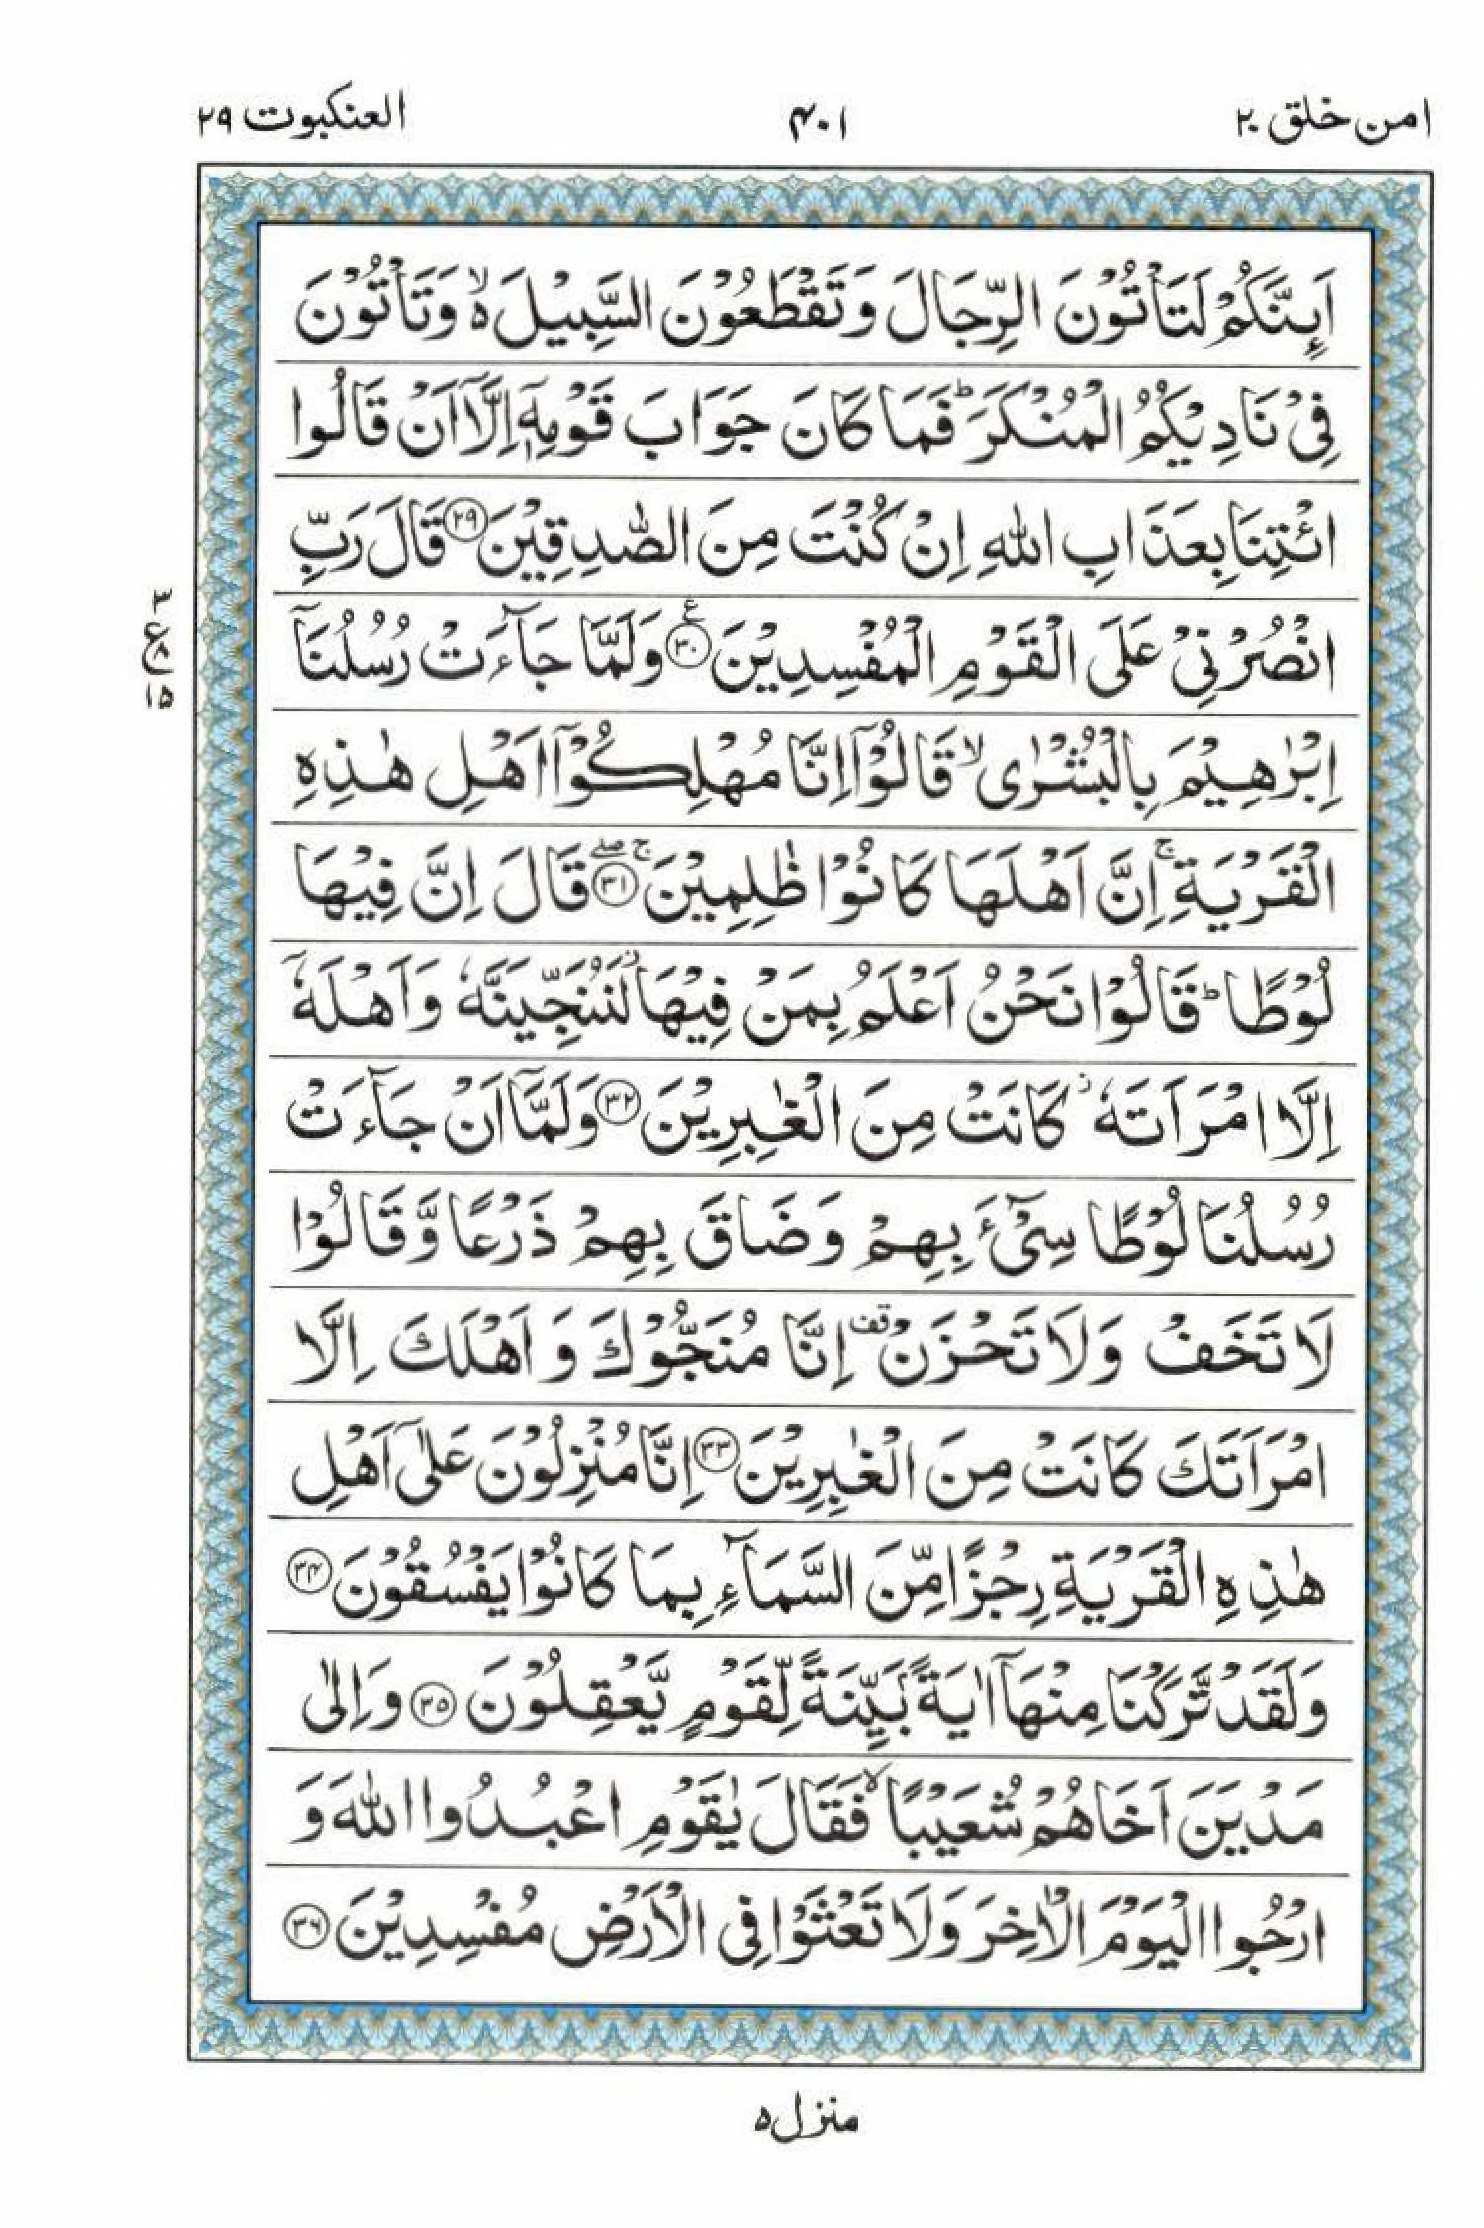 امن خلق ٢٠
٤٠١
العنكبوت ٢٩
اَىِٕنَّكُمْ لَتَاْتُوْنَ الرِّجَالَ وَتَقْطَعُوْنَ السَّبِيْلَ ۙ۬ وَتَاْتُوْنَ
فِيْ نَادِيْكُمُ الْمُنْكَرَ ؕ فَمَا كَانَ جَوَابَ قَوْمِهٖۤ اِلَّاۤ اَنْ قَالُوا
ائْتِنَا بِعَذَابِ اللّٰهِ اِنْ كُنْتَ مِنَ الصّٰدِقِيْنَ ﴿٢٩﴾ قَالَ رَبِّ
انْصُرْنِيْ عَلَى الْقَوْمِ الْمُفْسِدِيْنَ ﴿٣٠﴾ ع وَلَمَّا جَآءَتْ رُسُلُنَاۤ
اِبْرٰهِيْمَ بِالْبُشْرٰى ۙ قَالُوْۤا اِنَّا مُهْلِكُوْۤا اَهْلِ هٰذِهِ
الْقَرْيَةِ ۚ اِنَّ اَهْلَهَا كَانُوْا ظٰلِمِيْنَ ۚ ﴿٣١﴾ ۖ قَالَ اِنَّ فِيْهَا
لُوْطًا ؕ قَالُوْا نَحْنُ اَعْلَمُ بِمَنْ فِيْهَا ؗ لَنُنَجِّيَنَّهٗ وَاَهْلَهٗۤ
اِلَّا امْرَاَتَهٗ ؗ كَانَتْ مِنَ الْغٰبِرِيْنَ ﴿٣٢﴾ وَلَمَّاۤ اَنْ جَآءَتْ
رُسُلُنَا لُوْطًا سِيْٓءَ بِهِمْ وَضَاقَ بِهِمْ ذَرْعًا وَّقَالُوْا
لَا تَخَفْ وَلَا تَحْزَنْ قف اِنَّا مُنَجُّوْكَ وَاَهْلَكَ اِلَّا
امْرَاَتَكَ كَانَتْ مِنَ الْغٰبِرِيْنَ ﴿٣٣﴾ اِنَّا مُنْزِلُوْنَ عَلٰۤى اَهْلِ
هٰذِهِ الْقَرْيَةِ رِجْزًا مِّنَ السَّمَآءِ بِمَا كَانُوْا يَفْسُقُوْنَ ﴿٣٤﴾
وَلَقَدْ تَّرَكْنَا مِنْهَاۤ اٰيَةًۢ بَيِّنَةً لِّقَوْمٍ يَّعْقِلُوْنَ ﴿٣٥﴾ وَاِلٰى
مَدْيَنَ اَخَاهُمْ شُعَيْبًا ۙ فَقَالَ يٰقَوْمِ اعْبُدُوا اللّٰهَ وَ
ارْجُوا الْيَوْمَ الْاٰخِرَ وَلَا تَعْثَوْا فِي الْاَرْضِ مُفْسِدِيْنَ ﴿٣٦﴾
٣
ع ٨
١٥
منزل ٥